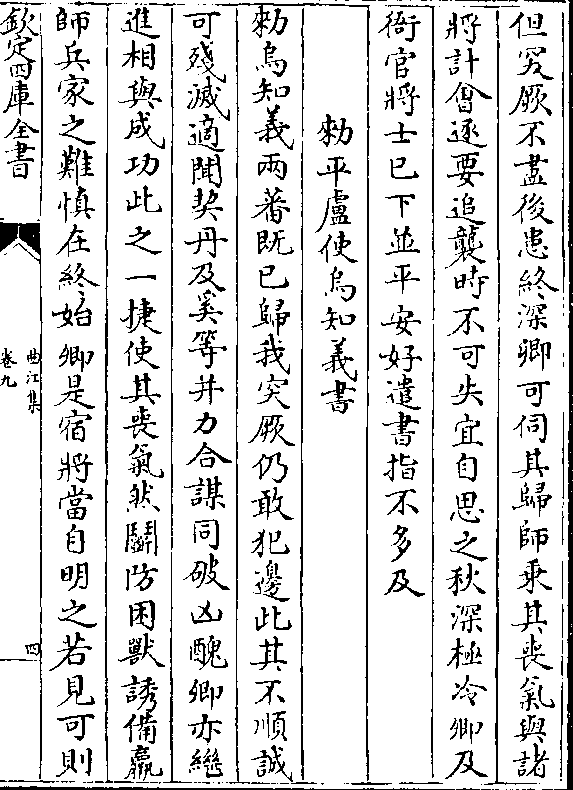 但突厥不盡後患終深卿可伺其歸師乘其喪氣與諸
將計會逐要追襲時不可失宜自思之秋深極冷卿及
衙官將士已下並平安好遣書指不多及
勅平盧使烏知義書
勅烏知義兩蕃既已歸我突厥仍敢犯邊此其不順誠
可殘滅適聞契丹及奚等并力合謀同破凶醜卿亦繼
進相與成功此之一捷使其喪氣然鬭防困獸誘備羸
師兵家之難慎在終始卿是宿將當自明之若見可則
欽定四庫全書
曲江集
卷九
四